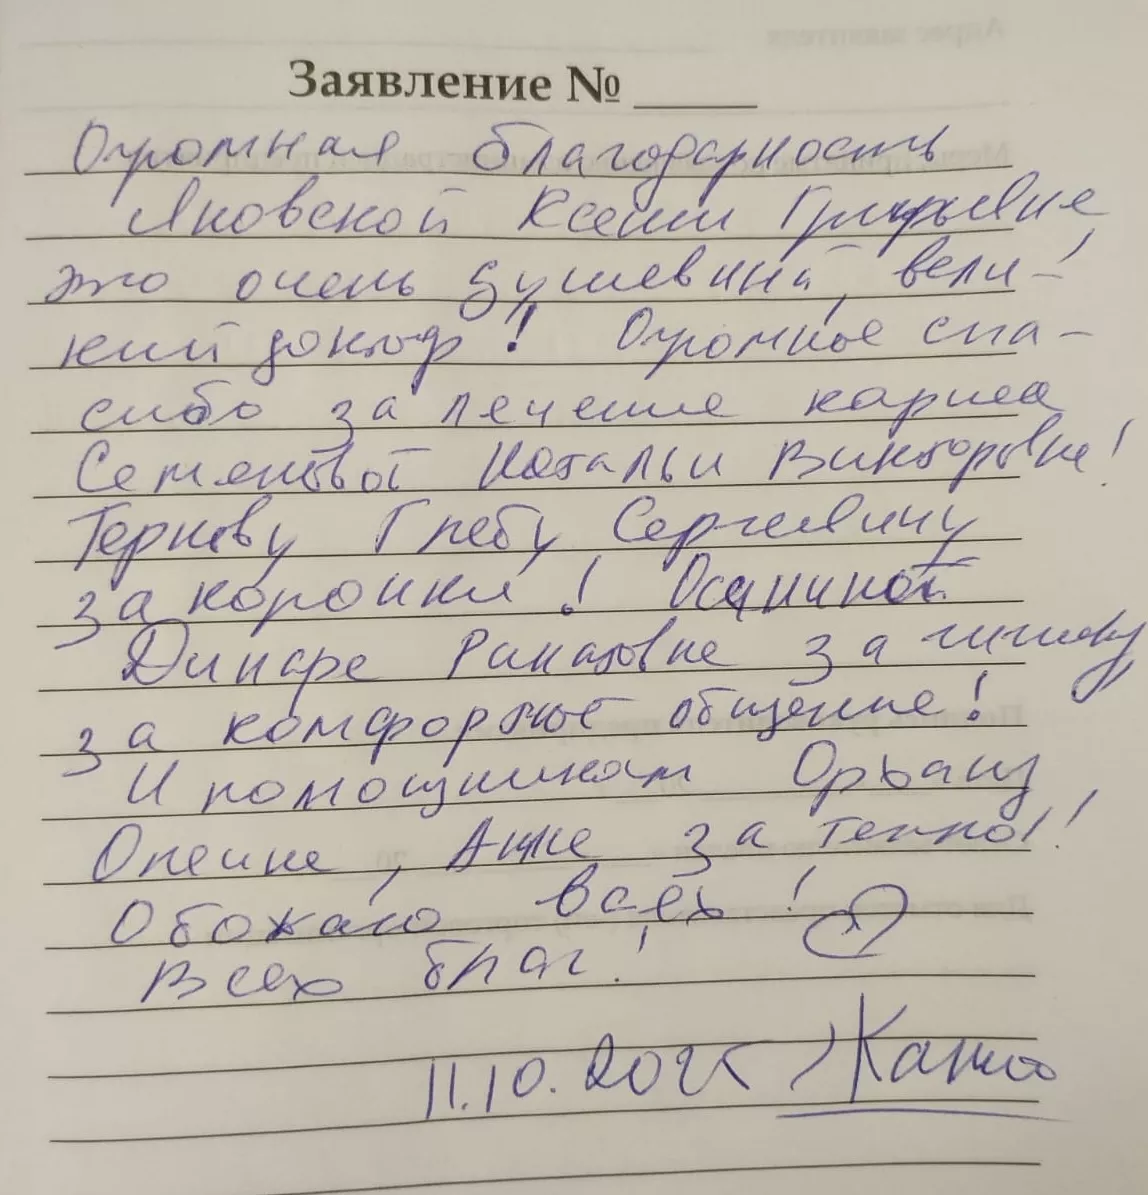 Заявление №
Огромная благодарность
Яновской Ксении Григорьевне,
это очень душевный, вели-
кий доктор! Огромное спа-
сибо за лечение кариеса
Семеновой Натальи Викторовне!
Тернову Глебу Сергеевичу
за коронки! Осяниной
Динаре Ринатовне за чистку
за комфортное общение!
И помощникам
за тепло!
Обожаю всех!
Всех благ!
11.10.2025